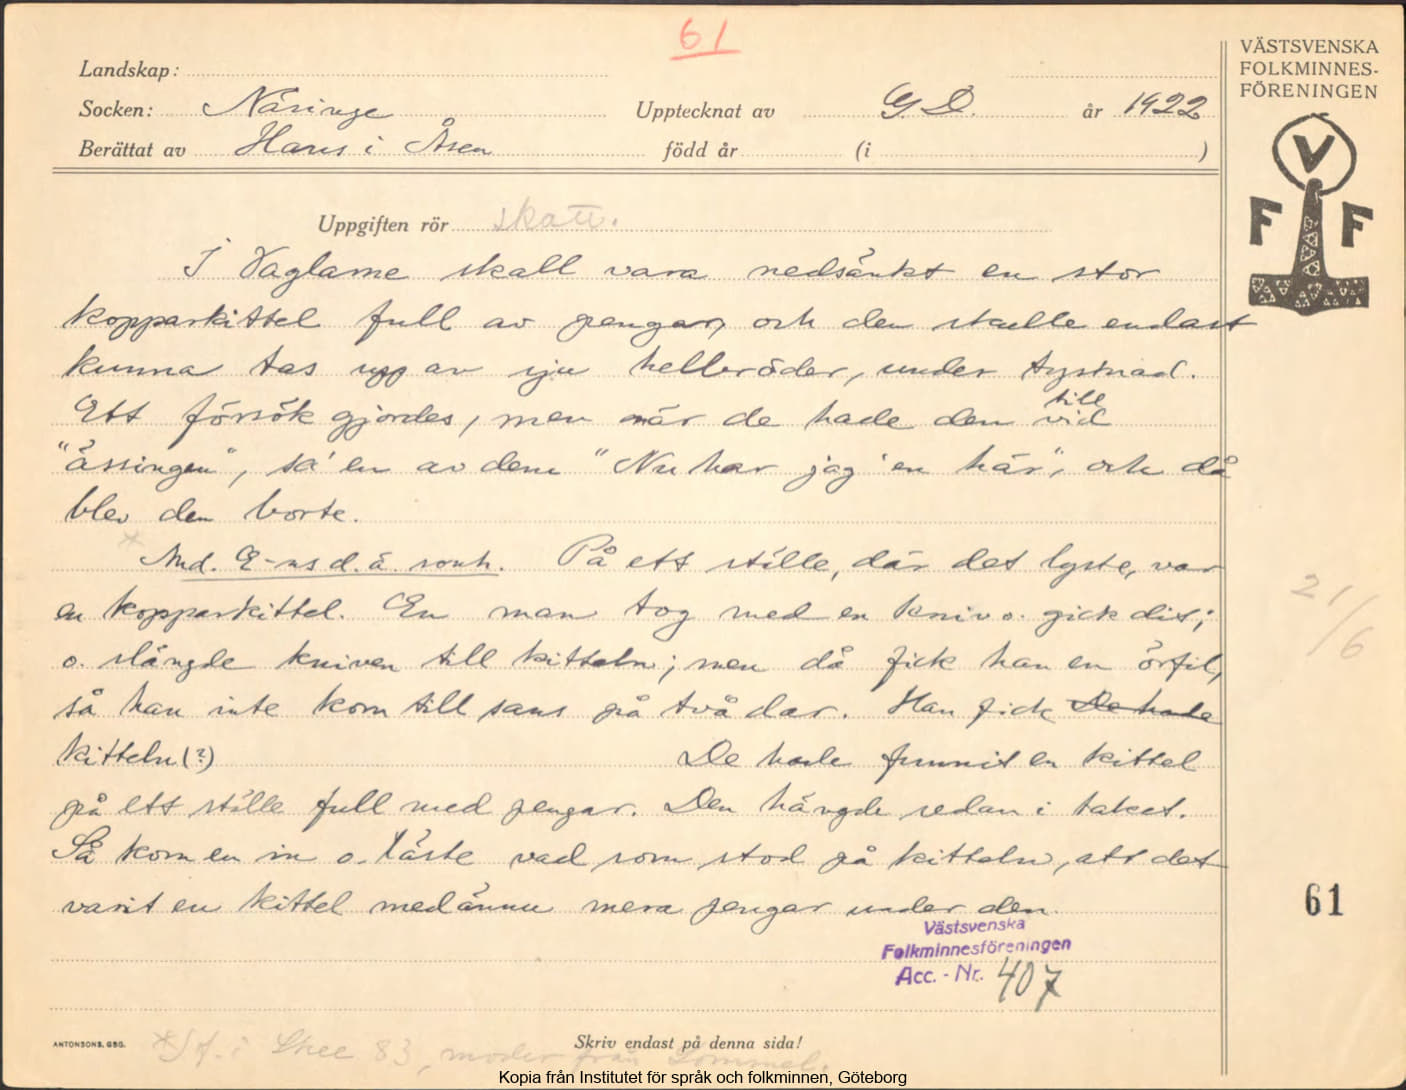 61
Landskap:
VÄSTSVENSKA
FOLKMINNES-
FÖRENINGEN
Socken: Näsinge Upptecknat av G. D. år 1922
Berättat av Hans i Åsen född år (i )
V
F F
Uppgiften rör skatt.
I Vaglarne skall vara nedsänkt en stor
kopparkittel full av pengar, och den skulle endast
kunna tas upp av sju hellbröder, under tystnad.
Ett försök gjordes, men när de hade den vid till
"ässingen", sa' en av dem "Nu har jag 'en här", och då
blev den borte.
* And. E-ns d.ä. sonh. På ett ställe, där det lyste, var
en kopparkittel. En man tog med en kniv o. gick dit;
o. slängde kniven till kitteln; men då fick han en örfil,
så han inte kom till sans på två dar. Han fick De hade
kitteln (?) De hade funnit en kittel
på ett ställe full med pengar. Den hängde sedan i taket.
Så kom en in o. läste vad som stod på kitteln, att det
varit en kittel med ännu mera pengar under den.
21/6
61
Västsvenska
Folkminnesföreningen
Acc. - Nr. 407
ANTONSONS, GBG.
Skriv endast på denna sida!
* f. i Skee 83, moder från Lommel.
Kopia från Institutet för språk och folkminnen, Göteborg